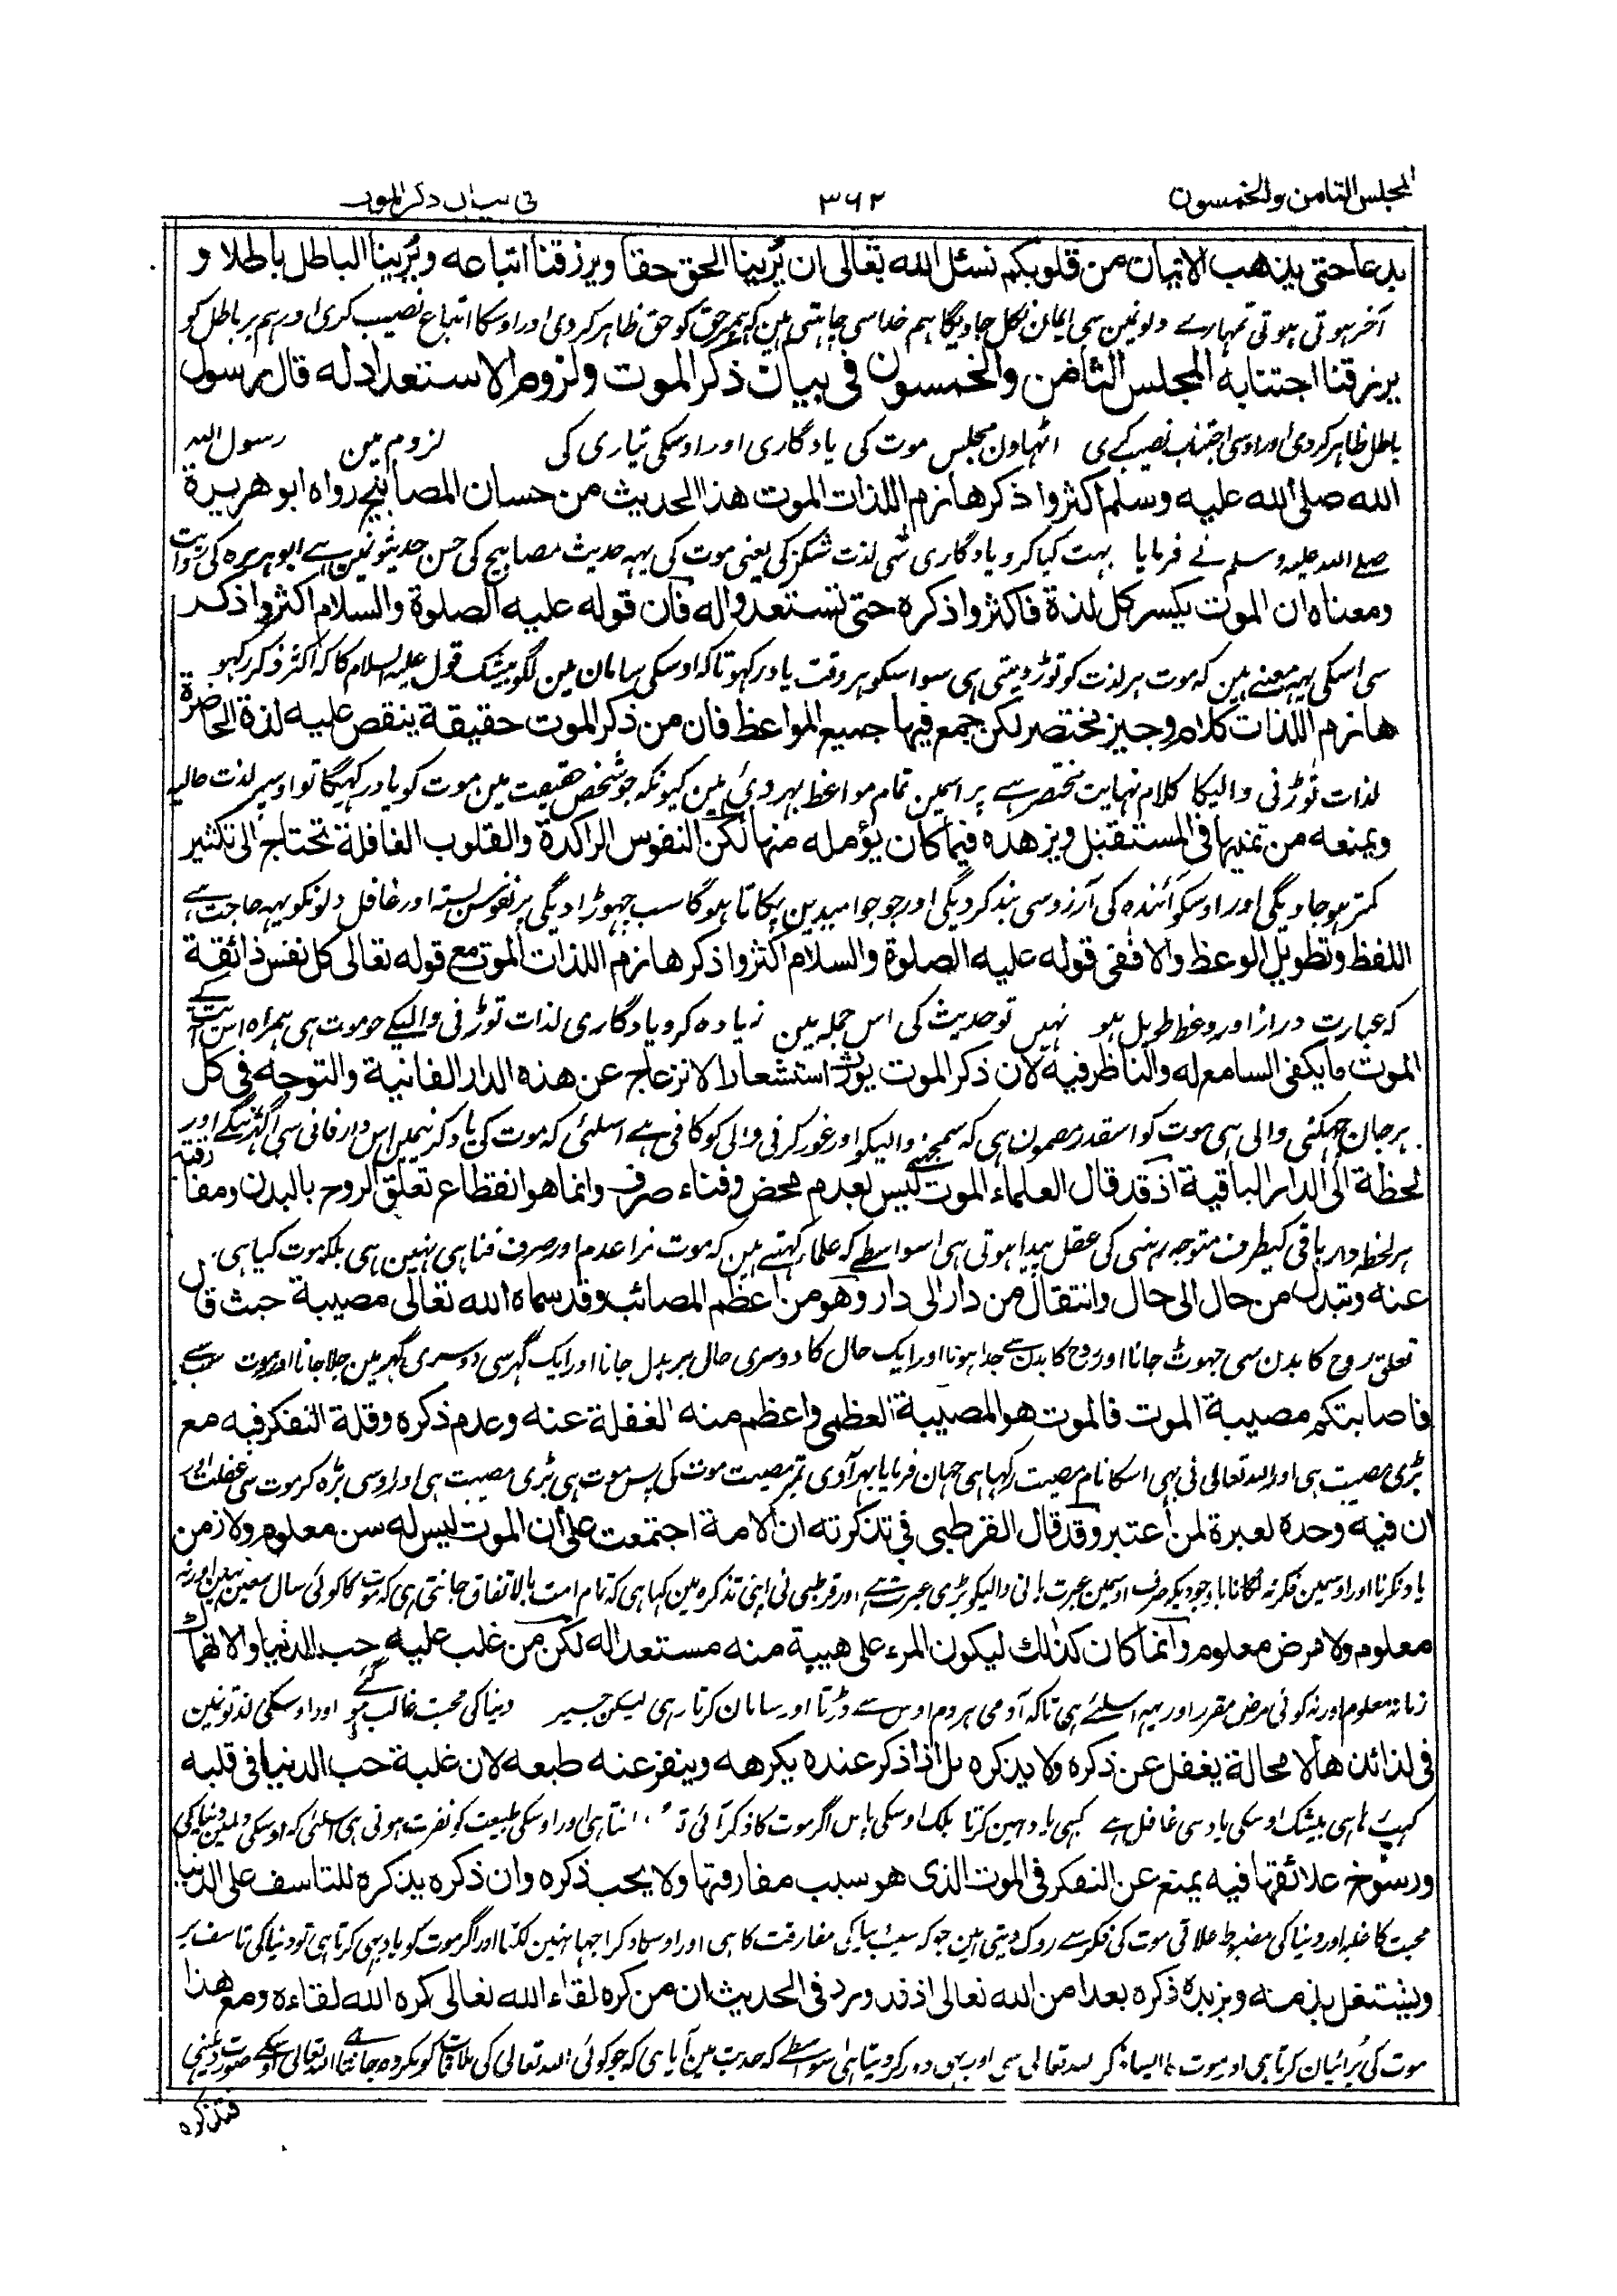 المجلس الثامن والخمسون ۳۶۲ فی بیان ذکر الموت
بدعا حتی یذهب الایمان من قلوبکم نسئل الله تعالی ان یرینا الحق حقا ویرزقنا اتباعه ویرینا الباطل باطلا و
آخر ہوتی ہوتی تمہارے دلونمین سی ایمان نکل جاویگا ہم خدا سی چاہتی ہین کہ ہمپر حق کو حق ظاہر کردی اور اوسکا اتباع نصیب کری اور ہم پر باطل کو
یرزقنا اجتنابه المجلس الثامن والخمسون فی بیان ذکر الموت ولزوم الاستعداد له قال رسول
باطل ظاہر کردی اور اوسی اجتناب نصیب کے ی اٹہاون مجلس موت کی یادگاری اور اوسکی تیاری کی لزوم مین رسول الله
الله صلی الله علیه وسلم اکثروا ذکر هازم اللذات الموت هذا الحدیث من حسان المصابیح رواه ابو هریرة
صلے الله علیہ وسلم نے فرمایا بہت کیا کرو یادگاری شی لذت شکن کی یعنی موت کی یہہ حدیث مصابیح کی حسن حدیثونمین ہے ابو ہریرہ کی روایت
ومعناه ان الموت یکسر کل لذة فاکثروا ذکره حتی تستعدوا له فان قوله علیه الصلوة والسلام اکثروا ذکر
سی اسکی یہہ معنے ہین کہ موت ہر لذت کو توڑ دیتی ہی سو اسکو ہر وقت یاد رکہو تاکہ اوسکی سامان مین لگو بیشک قول علیہ السلام کا کہ اکثر ذکر رکہو
هازم اللذات کلام وجیز مختصر لکن جمع فیها جمیع المواعظ فان من ذکر الموت حقیقة ینقص علیه لذة الحاضرة
لذات توڑنی والیکا کلام نہایت مختصر ہے پر اسمین تمام مواعظ بہر دئ ہین کیونکہ جو شخص حقیقت مین موت کو یاد رکہیگا تو اوسپر لذت حالیہ
ویمنعه من تمنیها فی المستقبل ویزهده فیما کان یؤمله منها لکن النفوس الراکدة والقلوب الغافلة تحتاج الی تکثیر
کمتر ہوجاویگی اور اوسکو آئندہ کی آرزو سی بند کردیگی اور جو جو امیدین پکاتا ہوگا سب چہوڑا دیگی پر نفوس بستہ اور غافل دلونکو یہہ حاجت ہے
اللفظ وتطویل الوعظ والا ففی قوله علیه الصلوة والسلام اکثروا ذکر هازم اللذات الموت مع قوله تعالی کل نفس ذائقة
کہ عبارت دراز اور وعظ طویل ہو نہیں تو حدیث کی اس جملہ مین زیادہ کرو یادگاری لذات توڑنی والیکے جو موت ہی ہمراہ اس آیت کے
الموت ما یکفی السامع له والناظر فیه لان ذکر الموت یورث استشعار الانزعاج عن هذه الدار الفانیة والتوجه فی کل
ہر جان چکہنی والی ہی موت کو اسقدر مضمون ہی کہ سمجہنے والیکو اور غور کرنی والی کو کافی ہے اسلئی کہ موت کی یاد کرنیمین اس دار فانی سی اکہڑنیکے اور
لحظة الی الدار الباقیة اذ قد قال العلماء الموت لیس بعدم محض وفناء صرف وانما هو انقطاع تعلق الروح بالبدن ومفارقته
ہر لحظہ دار باقی کیطرف متوجہ رہنی کی عقل پیدا ہوتی ہی اسواسطے کہ علما کہتے ہین کہ موت نرا عدم اور صرف فنا ہی نہین ہی بلکہ موت کیا ہی
عنه وتبدل من حال الی حال وانتقال من دار الی دار وهو من اعظم المصائب وقد سماه الله تعالی مصیبة حیث قال
تعلق روح کا بدن سی چہوٹ جانا اور روح کا بدن سے جدا ہونا اور ایک حال کا دوسری حال پر بدل جانا اور ایک گہر سی دوسری گہر مین چلا جانا اور موت سب سے
فاصابتکم مصیبة الموت فالموت هو المصیبة العظمی واعظم منه الغفلة عنه وعدم ذکره وقلة التفکر فیه مع
بڑی مصیبت ہی اور الله تعالی نی بہی اسکا نام مصیبت رکہا ہی جہان فرمایا پہر آوی تمپر مصیبت موت کی پس موت ہی بڑی مصیبت ہی اور اوسی بڑہ کر موت سی غفلت اور
ان فیه وحده لعبرة لمن اعتبر وقد قال القرطبی فی تذکرته ان الامة اجتمعت علی ان الموت لیس له سن معلوم ولا زمن
یاد نکرنا اور اوسمین فکر نہ لگانا باوجودیکہ صرف اوسمین عبرت پانی والیکو بڑی عبرت ہے اور قرطبی نی اپنی تذکرہ مین کہا ہی کہ تمام امت بالاتفاق جانتی ہی کہ موت کا کوئی سال معین نہین اور نہ
معلوم ولا مرض معلوم وانما کان کذلك لیکون المرء علی هیبة منه مستعدا له لکن من غلب علیه حب الدنیا والانهماك
زمانہ معلوم اور نہ کوئی مرض مقرر اور یہہ اسلئے ہی تاکہ آدمی ہر دم اوس سے ڈرتا اور سامان کرتا رہی لیکن جسپر دنیا کی محبت غالب ہو گئے اور اوسکی لذتونمین
فی لذائذها لا محالة یغفل عن ذکره ولا یذکره بل اذا ذکر عنده یکرهه وینفر عنه طبعه لان غلبة حب الدنیا فی قلبه
بیشک اوسکی یاد سی غافل ہے کبہی یاد نہین کرتا بلکہ اوسکی پاس اگر موت کا ذکر آئی اور اوسکی طبیعت کو نفرت ہوتی ہی اسلئی کہ اوسکی دلمین دنیا کی
ورسوخ علائقها فیه یمنع عن التفکر فی الموت الذی هو سبب مفارقتها ولا یحب ذکره وان ذکره یذکره للتاسف علی الدنیا
محبت کا غلبہ اور دنیا کی مضبوط علاقی موت کی فکر سے روک دیتی ہین جو کہ سبب دنیا کی مفارقت کا ہی اور اوسکا ذکر اچہا نہین لگتا اور اگر موت کو یاد بہی کرتا ہی تو دنیا کی تاسف پر
ویشتغل بذمه ویزیده ذکره بعدا من الله تعالی اذ قد ورد فی الحدیث ان من کره لقاء الله تعالی کره الله لقاءه ومع هذا
موت کی برائیان کرتا ہی اور موت کا ایسا ذکر الله تعالی سی اور بہی دور کر دیتا ہی اسواسطے کہ حدیث مین آیا ہی کہ جو کوئی الله تعالی کی ملاقات کو مکروہ جانے الله تعالی اوسکے صورت دیکہنی
فتذکره